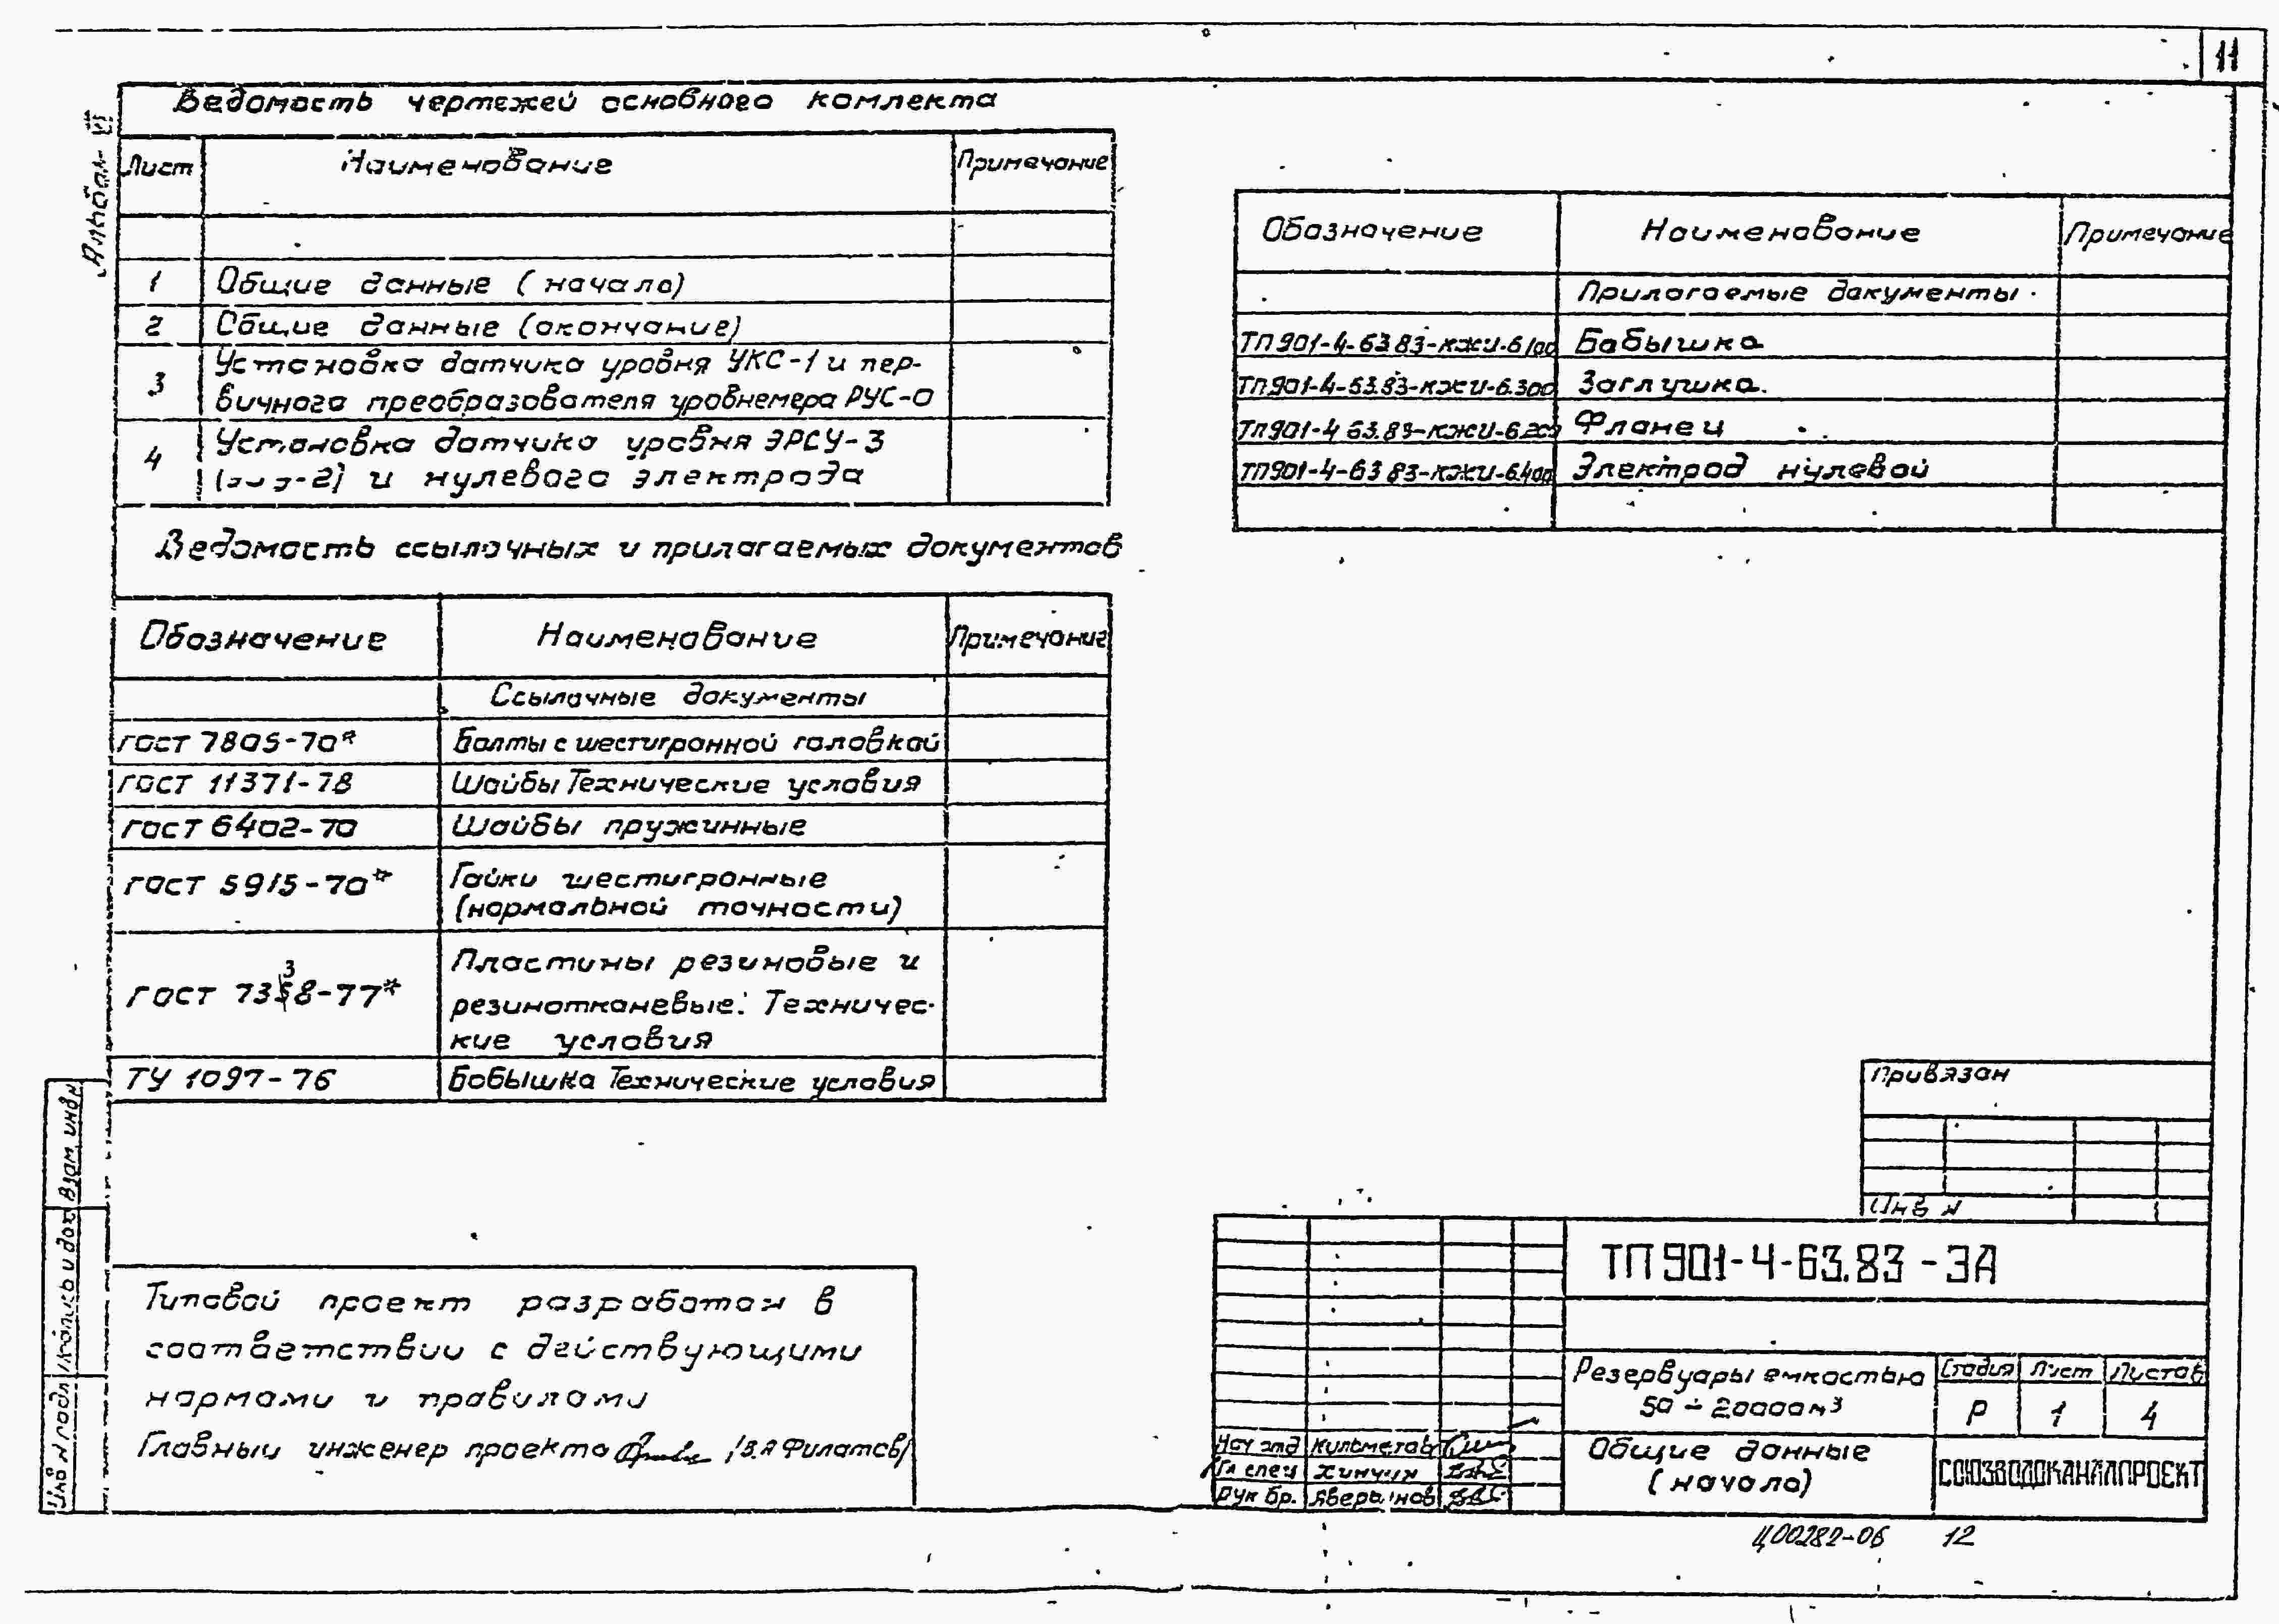 11
Альбом VI
Ведомость чертежей основного комлекта
Лист Наименование Примечание
1 Общие данные (начало)
2 Общие данные (окончание)
3 Установка датчика уровня УКС-1 и пер-
вичного преобразователя уровнемера РУС-0
4 Установка датчика уровня ЭРСУ-3
и нулевого электрода
Ведомость ссылочных и прилагаемых документов
Обозначение Наименование Примечание
Ссылочные документы
ГОСТ 7805-70* Болты с шестигранной головкой
ГОСТ 11371-78 Шайбы Технические условия
ГОСТ 6402-70 Шайбы пружинные
ГОСТ 5915-70* Гайки шестигранные
(нормальной точности)
ГОСТ 7338-77* Пластины резиновые и
резинотканевые. Техничес-
кие условия
ТУ 1097-76 Бобышка Технические условия
Обозначение Наименование Примечание
Прилагаемые документы
ТП901-4-63.83-КЖИ-6.100 Бобышка
ТП901-4-63.83-КЖИ-6.300 Заглушка
ТП901-4-63.83-КЖИ-6.200 Фланец
ТП901-4-63.83-КЖИ-6.400 Электрод нулевой
Типовой проект разработан в
соответствии с действующими
нормами и правилами
Главный инженер проекта /В.Я Филатов/
Привязан
Инв N
ТП 901-4-63.83-ЭА
Резервуары емкостью
50÷20000м³
Стадия Лист Листов
Р 1 4
Общие данные
(начало)
СОЮЗВОДОКАНАЛПРОЕКТ
Нач отд Кульметов
Гл спец Хинчин
Рук бр.
Инв N подл
Подпись и дата
Взам инв N
Ц00282-06 12